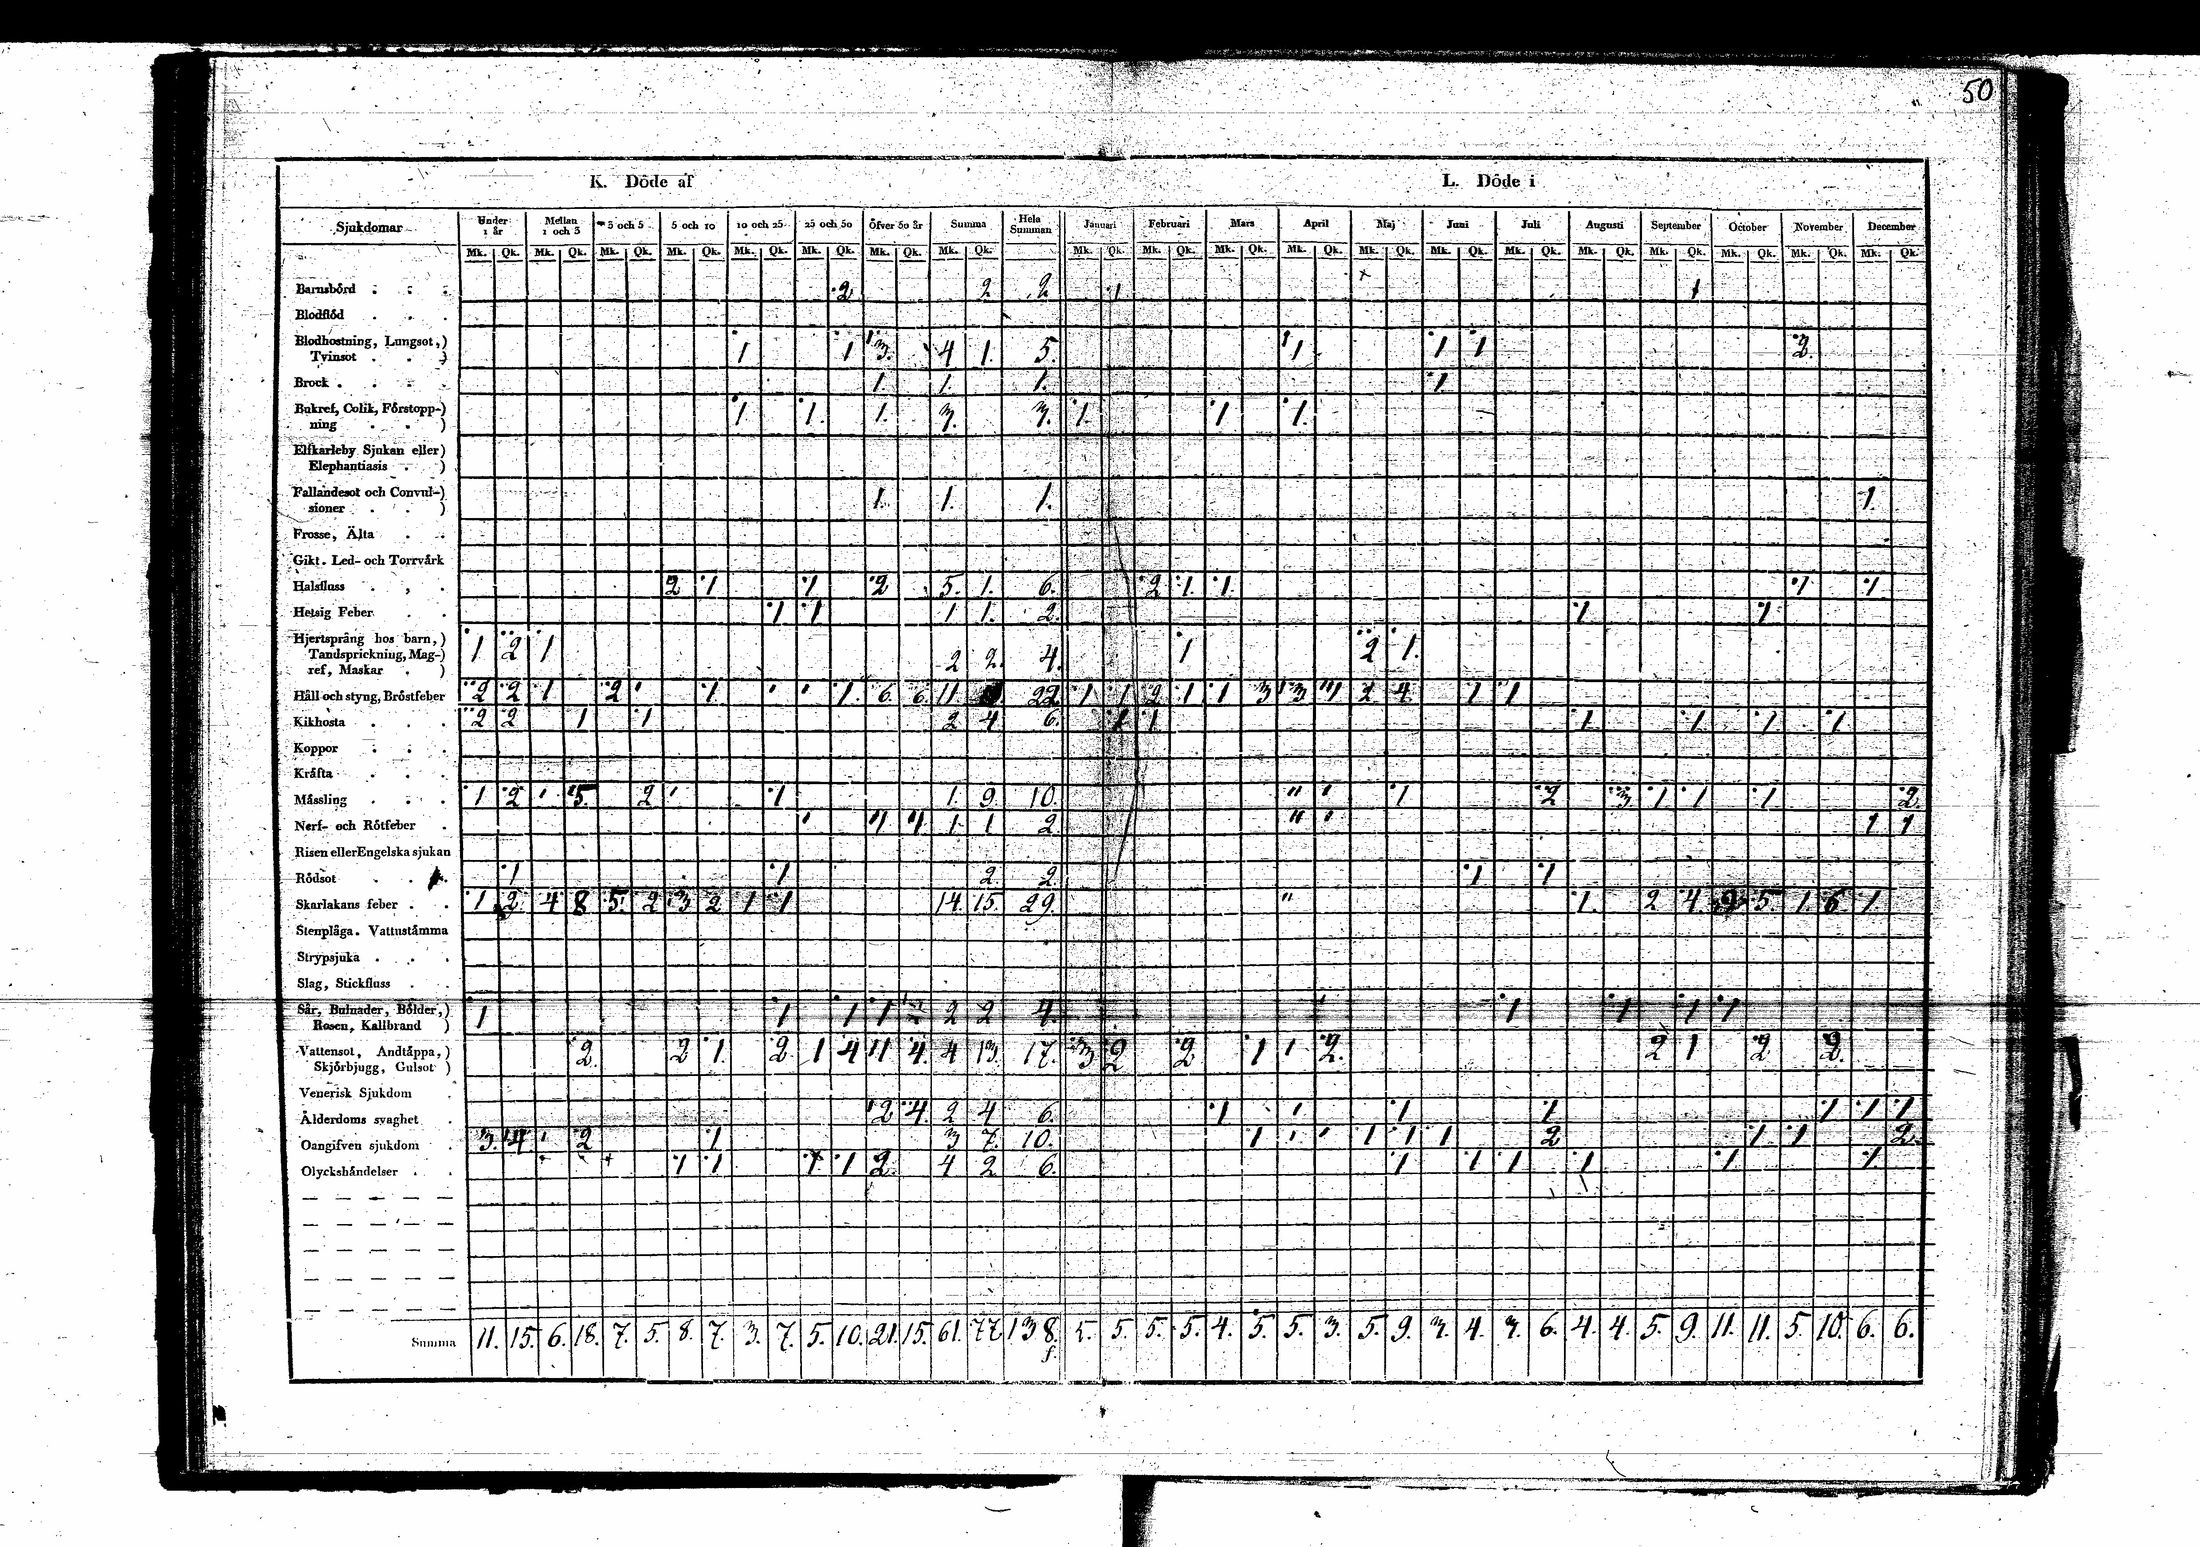 50
K. Döde af L. Döde i
Sjukdomar Under 1 år Mellan 1 och 3 3 och 5 5 och 10 10 och 25 25 och 50 Öfver 50 år Summa Hela Summan Januari Februari Mars April Maj Juni Juli Augusti September October November December
Mk. Qk. Mk. Qk. Mk. Qk. Mk. Qk. Mk. Qk. Mk. Qk. Mk. Qk. Mk. Qk. Mk. Qk. Mk. Qk. Mk. Qk. Mk. Qk. Mk. Qk. Mk. Qk. Mk. Qk. Mk. Qk. Mk. Qk. Mk. Qk. Mk. Qk. Mk. Qk.
Barnsbörd . . . 2 2 2 1 1
Blodflöd . . .
Blodhostning, Lungsot,)
Tvinsot . . ) 1 1 3. 4 1. 5. 1 1 1 2
Brock . . . . 1. 1. 1. 1.
Bukref, Colik, Förstopp-)
ning . . ) 1 1. 1. 3. 3. 1. 1 1.
Elfkarleby Sjukan eller)
Elephantiasis . )
Fallandesot och Convul-)
sioner . . ) 1. 1. 1. 1.
Frosse, Älta . .
Gikt. Led- och Torrvärk
Halsfluss . , . 2 1 1 2 5. 1. 6. 2 1. 1. 1 1
Hetsig Feber . . 1 1 1 1. 2. 1 1
Hjertsprång hos barn,)
Tandsprickning, Mag-)
ref, Maskar . ) 1 2 1 2 2. 4. 1 2 1.
Håll och styng, Bröstfeber 2 2 1 2 1 1. 1 1 1. 6. 6. 11 22. 1 1 2 1 1 3 3 1 2 4 1 1
Kikhosta . . . 2 2 1 1 2 4. 6. 1 1 1. 1 1 1
Koppor . . .
Kräfta . . .
Mässling . . . 1 2 1 5. 2 1 1 1. 9. 10. 1 2 3 1 1 1 2.
Nerf- och Rötfeber . 1. 1 2 1 1
Risen eller Engelska sjukan
Rödsot . . . 1 1 2. 2. 1 1
Skarlakans feber . . 1 2 4 8 5. 2 3 2 1 1 14. 15. 29. 1. 2 4. 9 5. 1. 6 1.
Stenplåga. Vattustämma
Strypsjuka . . .
Slag, Stickfluss . .
Sår, Bulnader, Bölder,)
Rosen, Kallbrand ) 1 1 1 1 2 2 4. 1 1 1 1
Vattensot, Andtäppa,)
Skjörbjugg, Gulsot ) 2. 2 1. 2 1 4 4. 4 13. 17. 3 2 2 1 1 2. 2 1 2 2.
Venerisk Sjukdom .
Ålderdoms svaghet . 2 4. 2 4 6. 1 1 1 1 1 1 1
Oangifven sjukdom . 3. 4 1 2 1 3 7. 10. 1 1 1 1 1 1 2 1 1 2.
Olyckshändelser . . 1 1 1 1 2. 4 2 6. 1 1 1 1 1 1
Summa 11. 15. 6. 18. 7. 5. 8. 7. 3. 7. 5. 10. 21. 15. 61. 77 138. 5. 5. 5. 5. 4. 5. 5. 3. 5. 9. 3. 4. 3. 6. 4. 4. 5. 9. 11. 11. 5. 10. 6. 6.